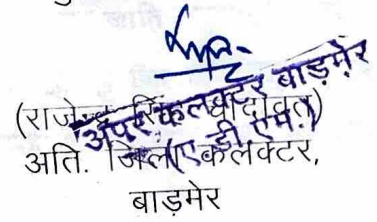 (राजेन्द्र सिंह चांदावत)
अति. जिला कलक्टर,
बाड़मेर
अपर कलक्टर बाड़मेर
(ए डी एम.)